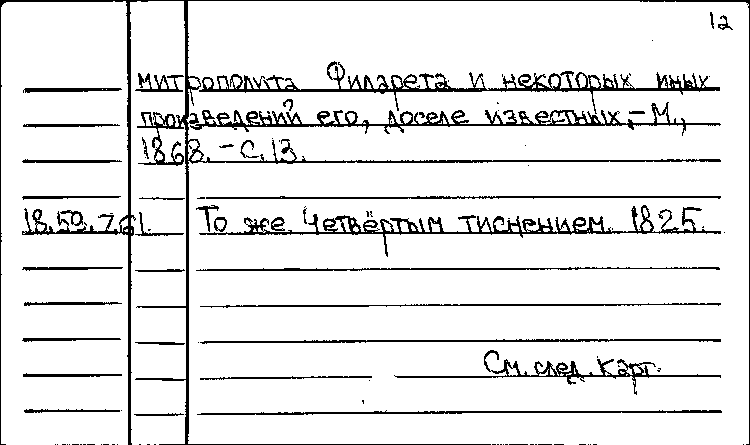 12
митрополита Филарета и некоторых иных
произведений его, доселе известных,- М.,
1868. - С. 13.
18.59.7.61. То же. Четвёртым тиснением. 1825.
См. след. карт.